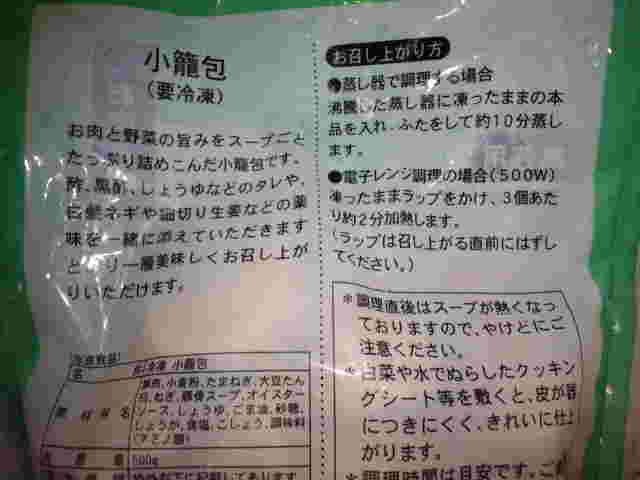 小籠包
(要冷凍)
お肉と野菜の旨みをスープごと
たっぷり詰めこんだ小龍包です。
酢、黒酢、しょうゆなどのタレや、
白髪ネギや細切り生姜などの薬
味を一緒に添えていただきます
とより一層美味しくお召し上が
りいただけます。
名
冷凍 小籠包
豚肉、小麦粉、たまねぎ、大豆たん
ねぎ、豚骨スープ、オイスター
原材料名
ソース、しょうゆ、ごま油、砂糖、
しょうが、食塩、こしょう、調味料
(アミノ酸)
量
500g
お召し上がり方
●蒸し器で調理する場合
沸騰した蒸し器に凍ったままの本
品を入れ、ふたをして約10分蒸し
ます。
●電子レンジ調理の場合(500W)
凍ったままラップをかけ、3個あた
り約2分加熱します。
(ラップは召し上がる直前にはずし
てください。)
*調理直後はスープが熱くなっ
ておりますので、やけどにご
注意ください。
*白菜や水でぬらしたクッキン
グシート等を敷くと、皮が器
につきにくく、きれいに仕上
がります。
*調理時間は目安です。